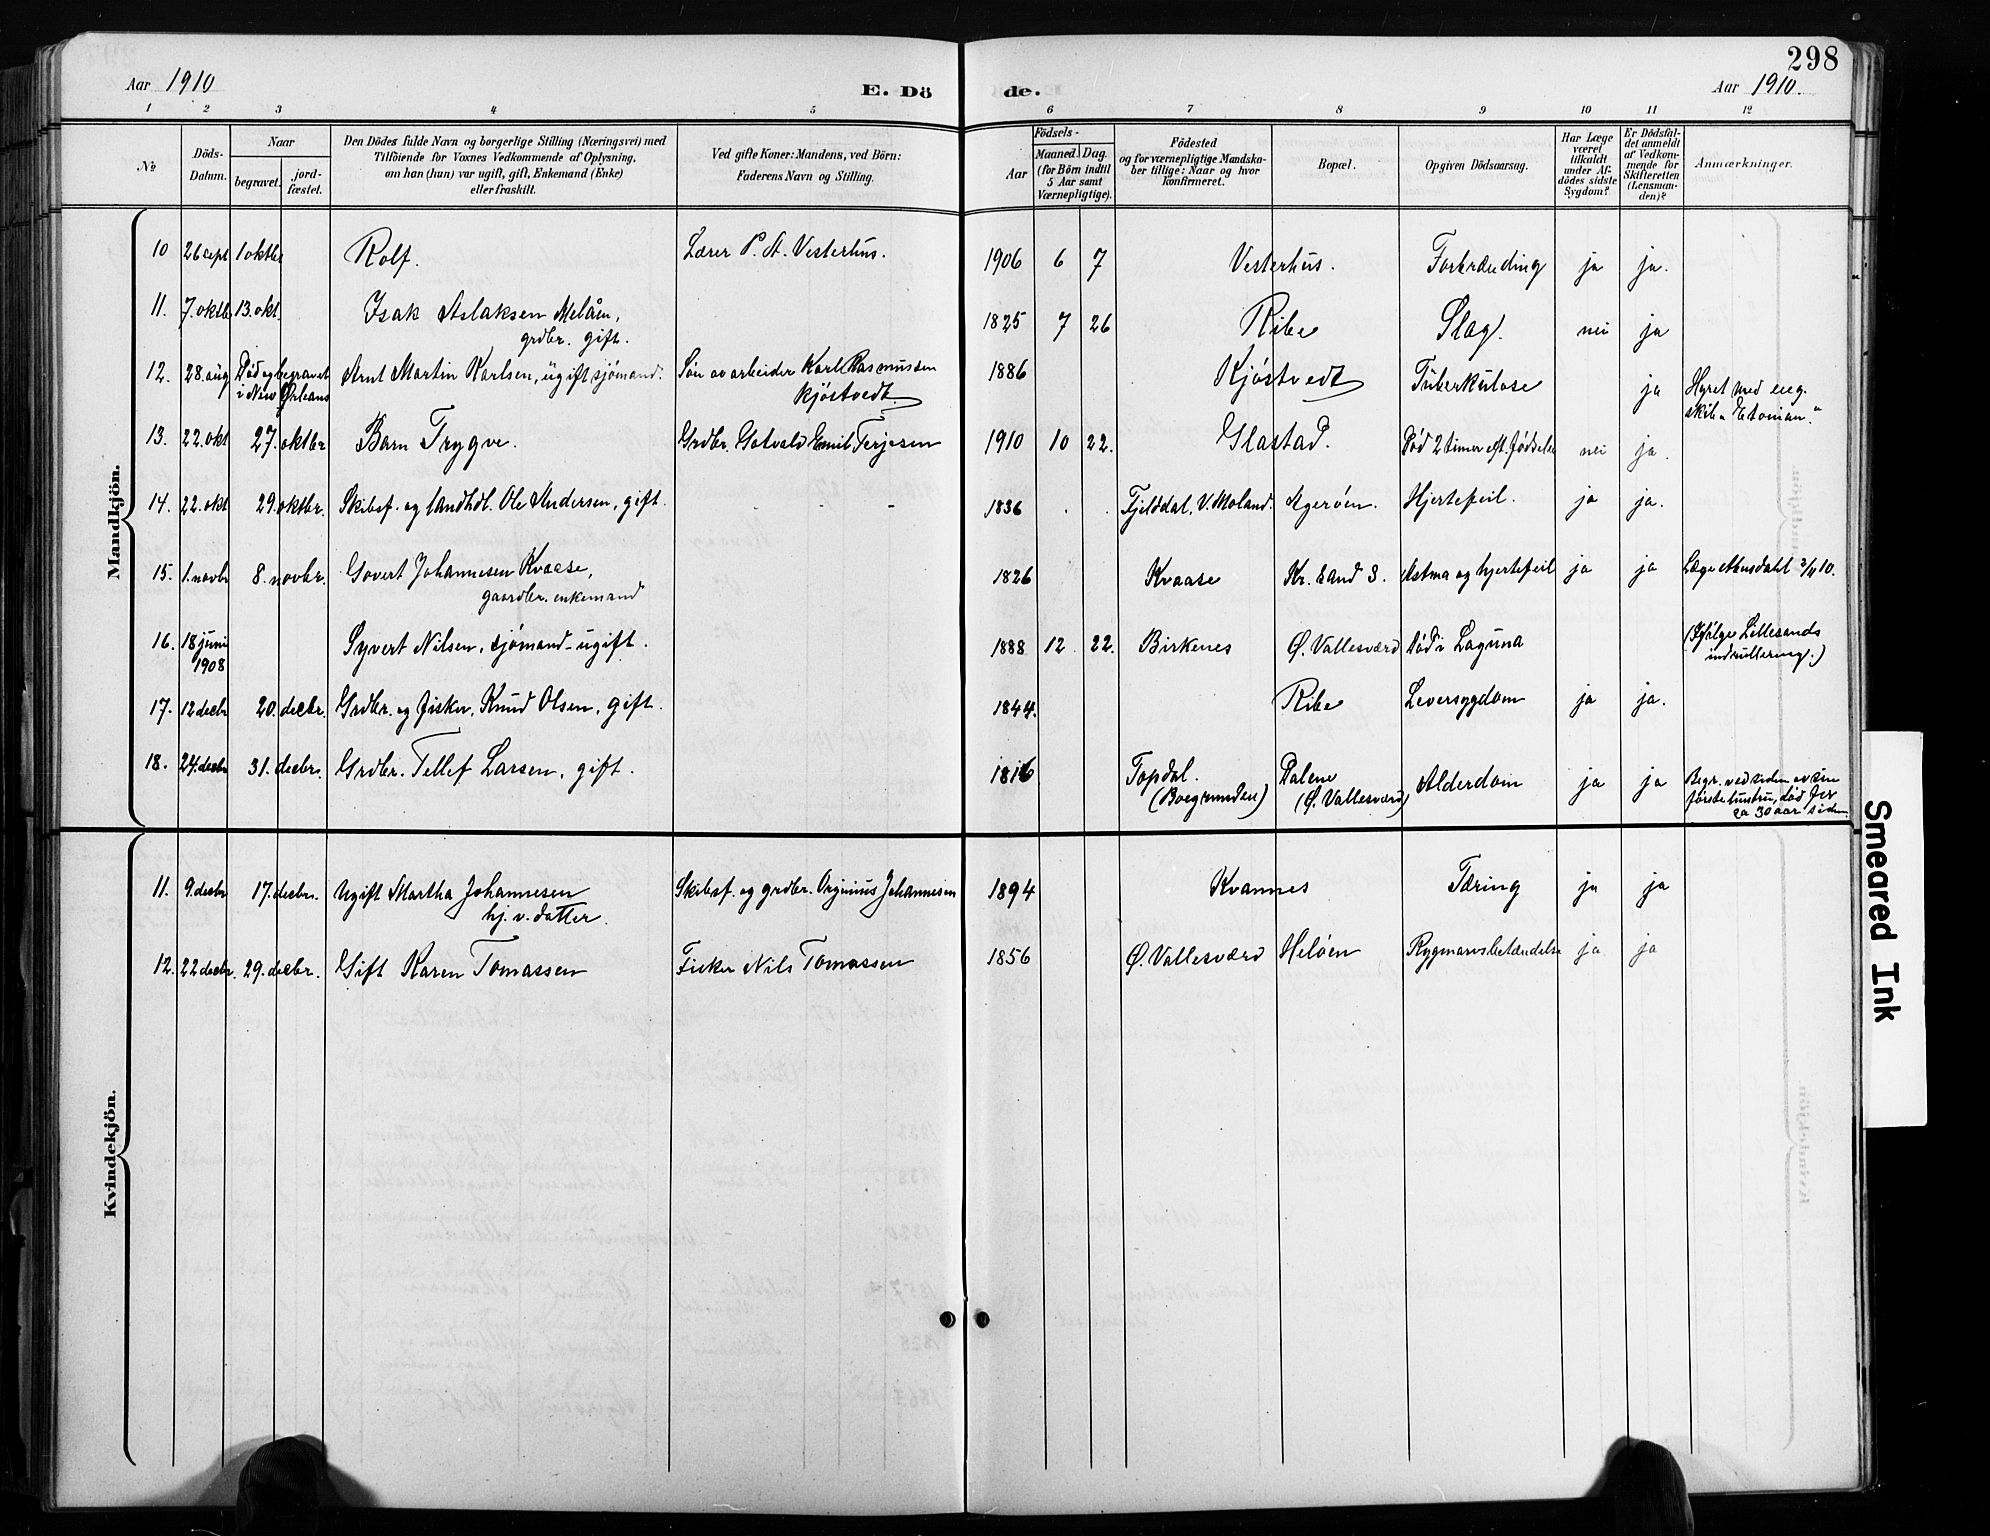 298
Aar 1910
E. Dö de.
Aar 1910.
1 2 3 4 5 6 7 8 9 10 11 12
No
Döds-Datum.
Naar
begravet.
jord-fæstet.
Den Dödes fulde Navn og borgerlige Stilling (Næringsvei) med
Tilföiende for Voxnes Vedkommende af Oplysning,
om han (hun) var ugift, gift, Enkemand (Enke)
eller fraskilt.
Ved gifte Koner: Mandens, ved Börn:
Faderens Navn og Stilling.
Födsels-
Aar
Maaned. Dag.
(for Börn indtil
5 Aar samt
Værnepligtige).
Födested
og for værnepligtige Mandska-
ber tillige: Naar og hvor
konfirmeret.
Bopæl.
Opgiven Dödsaarsag.
Har Læge
været
tilkaldt
under Af-
dödes sidste
Sygdom?
Er Dödsfal-
det anmeldt
af Vedkom-
mende for
Skifteretten
(Lensman-
den)?
Anmærkninger.
Mandkjön.
10 26 sept 1 oktbr Rolf. Lærer P. A. Vesterhus. 1906 6 7 Vesterhus. Forbrænding ja ja.
11. 7. oktb 13. okt. Isak Aslaksen Melåen,
grdbr. gift. 1825 7 26 Ribe Slag. nei ja
12. 28. aug Död og begravet
i New Orleans Arnt Martin Karlsen, ugift sjømand. Søn av arbeider Karl Rasmussen
Kjøstvedt. 1886 Kjøstvedt Tuberkulose ja Hyret med eng.
skib "Etonian."
13. 22. okt 27. oktbr Barn Trygve. Grdbr. Gotvald Emil Terjesen 1910 10 22. Glastad. Død 2 timer eft. fødselen nei ja.
14. 22. okt 29. oktbr. Skibsf. og landhdl. Ole Andersen, gift. - - - 1836 . . Fjelddal, V. Moland. Agerøen. Hjertefeil. ja ja.
15. 1. novbr 8. novbr. Govert Johannesen Kvaase,
gaardbr. enkemand 1826 Kvaase Kr. Sand S. Astma og hjertefeil ja ja Læge 10.
16. 18 juni
1908 Syvert Nilsen, sjømand - ugift. 1888 12 22. Birkenes Ø. Vallesværd Død i Laguna (Ifølge Lillesands
indrullering.)
17. 12 decbr 20. decbr. Grdbr. og fisker, Knud Olsen, gift. 1844. Ribe Leversygdom ja ja.
18. 24. decbr 31. decbr. Grdbr. Tellef Larsen, gift. 1816 Topdal.
(Boegrunden) Dalene
(Ø. Vallesværd) Alderdom ja ja Begr. ved siden av sin
første hustru, død for
ca 30 aar siden.
Kvindekjön.
11. 9. decbr 17. decbr. Ugift Martha Johannesen
hj. v. datter. Skibsf. og grdbr. Orginius Johannesen 1894 Kvannes Tæring ja ja
12. 22 decbr. 29. decbr. Gift Karen Tomassen Fisker Nils Tomassen 1856 Ø. Vallesværd Heløen Rygmarvsbetændelse ja ja
Smeared Ink